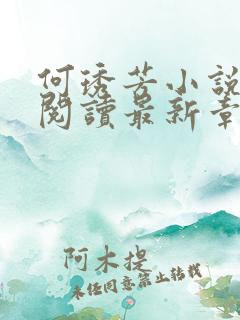 何琇芳小說
閱讀最新章
阿木提
未经同意禁止转载